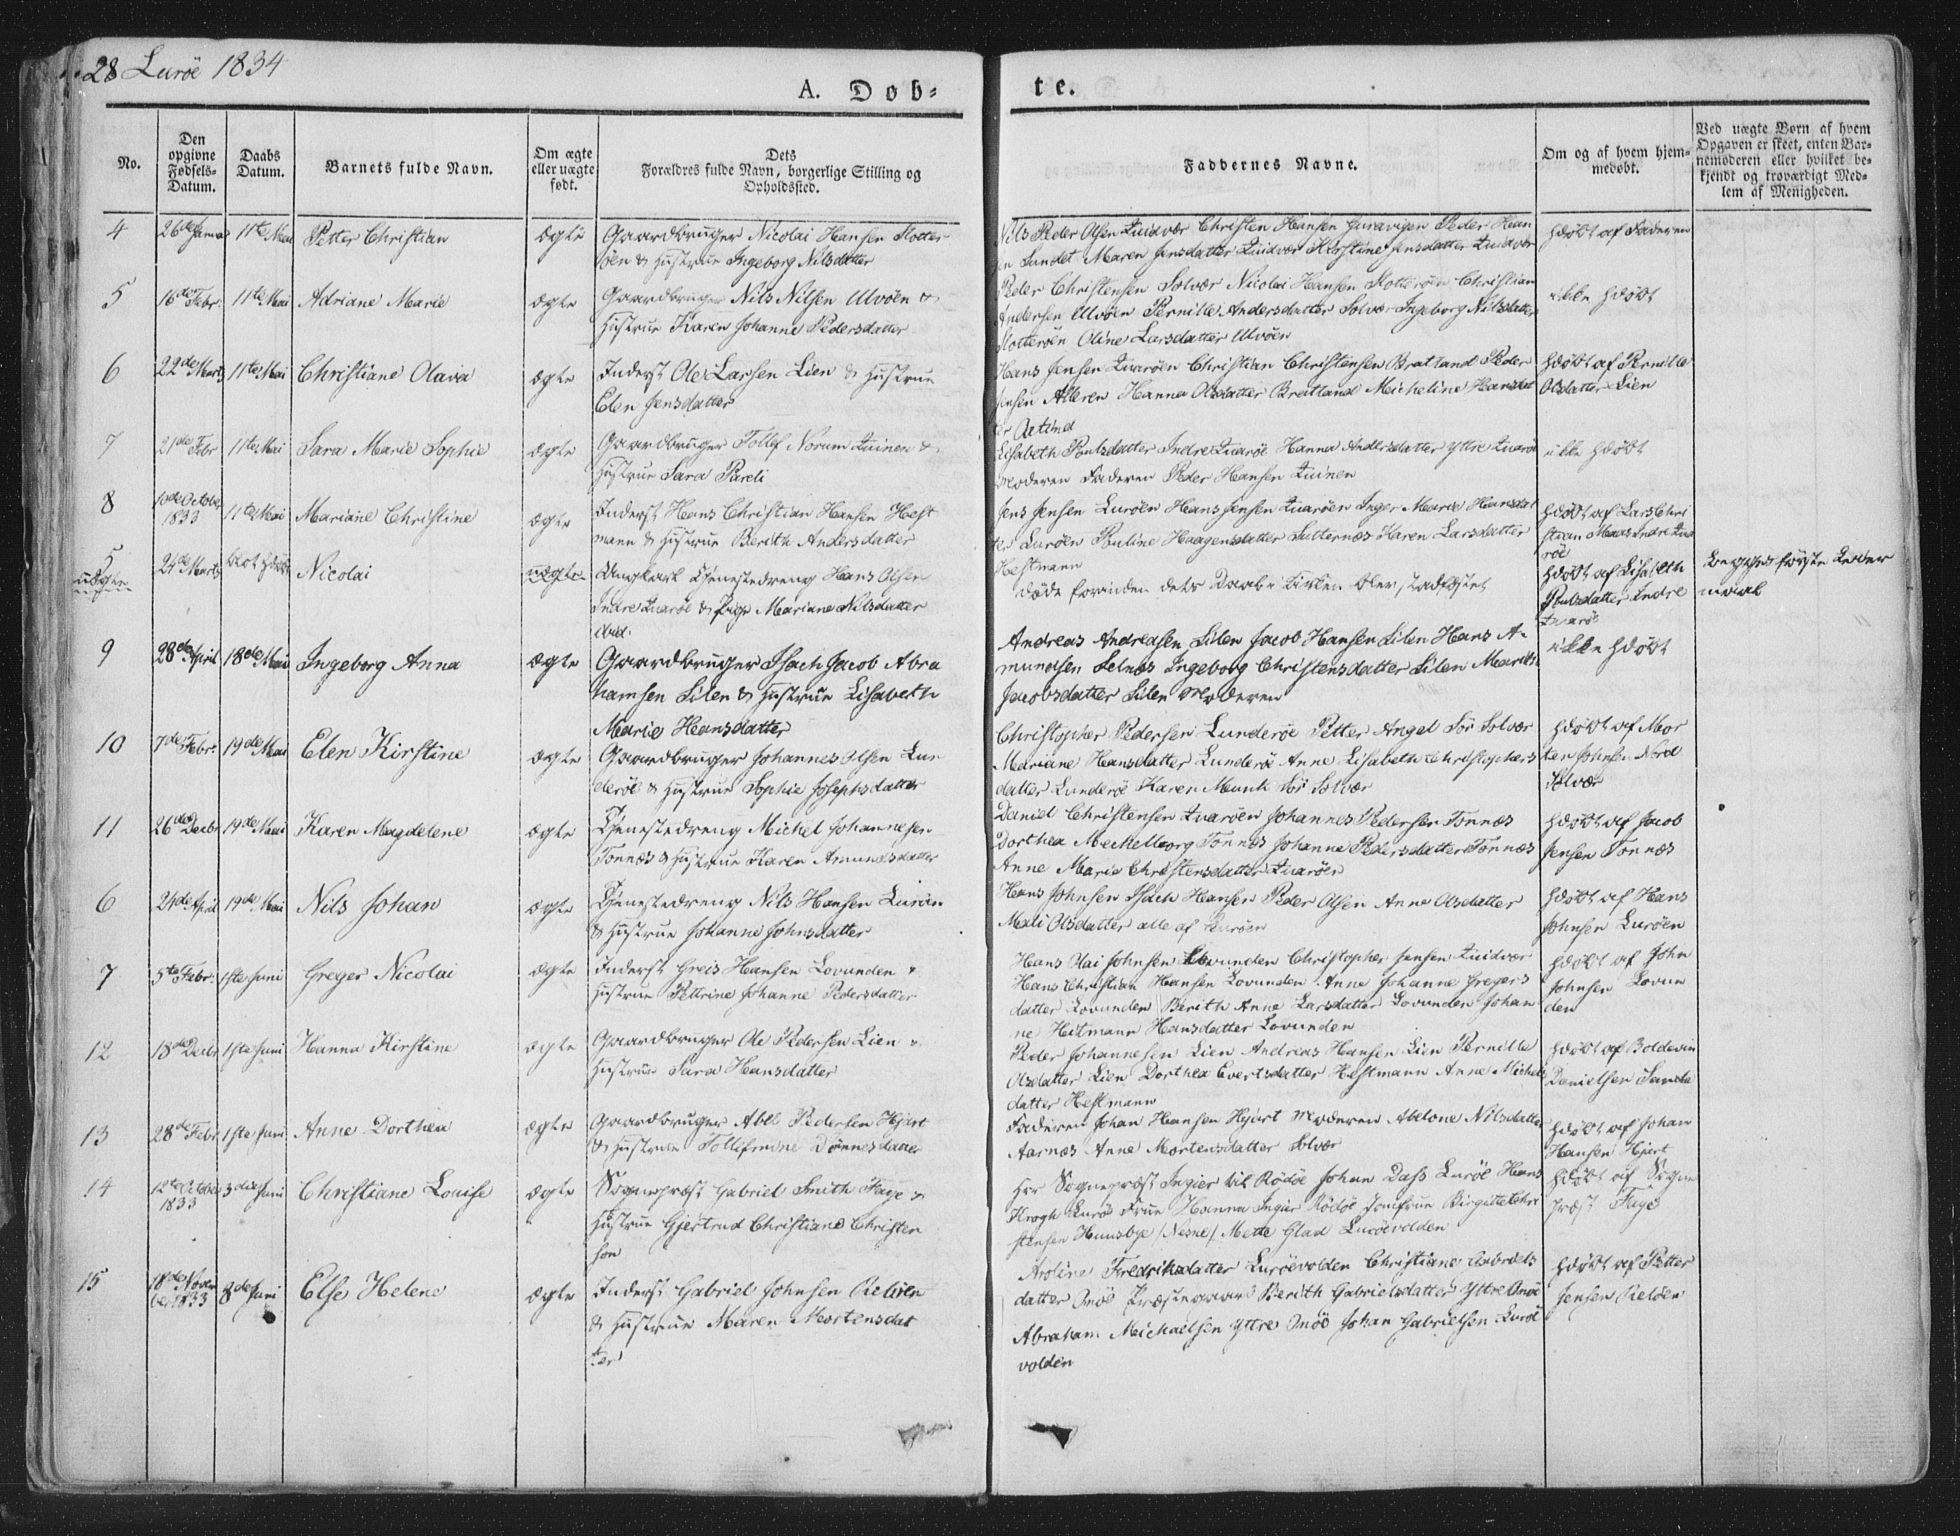 28 Lurøe 1834
A. Døb-
te.
No.
Den
opgivne
Fødsels-
Datum.
Daabs
Datum.
Barnets fulde Navn.
Om ægte
eller uægte
født.
Dets
Forældres fulde Navn, borgerlige Stilling og
Opholdssted.
Faddernes Navne.
Om og af hvem hjem-
medøbt.
Ved uægte Børn af hvem
Opgaven er skeet, enten Bar-
nemoderen eller hvilket be-
kjendt og troværdigt Med-
lem af Menigheden.
4 26de Janua 11te Mai Petter Christian ægte Gaardbruger Nicolai Hansen Slotter-
øen & Hustrue Ingeborg Nilsdatter
Nils Peder Olsen Quidvær Christen Hansen Peder Han
sen Sundet Maren Jensdatter Quidvær Kirstine Jensdatter Quidvær
hdøbt af Faderen
5 16de Febr. 11te Mai Adriane Marie ægte Gaardbruger Nils Nilsen Ulvøen &
Hustrue Karen Johanne Pedersdatter
Peder Christensen Solvær Nicolai Hansen Slotterøen Christian
Andersen Ulvøen Pernille Andersdatter Solvær Ingeborg Nilsdatter
Slotterøen Oline Larsdatter Ulvøen
ikke hdøbt
6 22de Marts 11te Mai Christiane Olava ægte Inderst Ole Larsen Lien & Hustrue
Elen Jensdatter
Hans Jensen Quarøen Christian Christensen Bratland Peder
Jensen Alteren Hanna Olsdatter Bratland Micheline Hansdat
ter
hdøbt af Pernille
Olsdatter Lien
7 21de Febr 11te Mai Sara Marie Sophie ægte Gaardbruger Tollef Norum Quinen &
Hustrue Sara Pareli
Lisabeth Poulsdatter Indre Quarøe Hanna Andersdatter Yttre Quarøe
Moderen Faderen Peder Hansen Quinen
ikke hdøbt
8 10de October
1833 11te Mai Mariane Christine ægte Inderst Hans Christian Hansen Hest
mann & Hustrue Berith Andersdatter
Jens Jensen Lurøen Hans Jensen Quarøen Inger Marie Hansdat
ter Lurøen Pouline Haagensdatter Karen Larsdatter
Hestmann
hdøbt af Lars Chri
stian Maas Indre Qua
røe
5
uægte 24de Marts blot hdøbt Nicolai uægte Ungkarl Tjenestedreng Hans Olsen
Indre Quarøe & Pige Mariane Nilsdatter
ibid.
døde forinden dets Daab i Kirken blev stadfæstet
hdøbt af Lisabeth
Poulsdatter Indre
Quarøe
Begges første Leier
maal
9 28de April 18de Mai Ingeborg Anna ægte Gaardbruger Isach Jacob Abra
hamsen Silen & Hustrue Lisabeth
Marie Hansdatter
Andreas Andreasen Silen Jacob Hansen Silen Hans A-
mundsen Selnæs Ingeborg Christensdatter Silen Marith
Jacobsdatter Silen Moderen
ikke hdøbt
10 7de Febr. 19de Mai Elen Kirstine ægte Gaardbruger Johannes Olsen Lun
derøe & Hustrue Sophie Josephsdatter
Christopher Pedersen Lunderøe Petter Angel Sør Solvær
Mariane Hansdatter Lunderøe Anne Lisabeth Christophers
datter Lunderøe Karen Munk Sør Solvær
hdøbt af Mor
ten Johnsen Nord
Solvær
11 26de Decbr 19de Mai Karen Magdelene ægte Tjenestedreng Michel Johannesen
Tonnæs & Hustrue Karen Amundsdatter
Daniel Christensen Quarøen Johannes Pedersen Tonnæs
Dorthea Mechelborg Tonnæs Johanne Pedersdatter Tonnæs
Anne Marie Christensdatter Quarøen
hdøbt af Jacob
Jensen Tonnæs
6 24de April 19de Mai Nils Johan ægte Tjenestedreng Nils Hansen Lurøen
& Hustrue Johanne Johnsdatter
Hans Johnsen Isach Hansen Peder Olsen Anne Olsdatter
Mali Olsdatter alle af Lurøen
hdøbt af Hans
Johnsen Lurøen
7 5te Febr. 1ste Juni Greger Nicolai ægte Inderst Greis Hansen Lovunden &
Hustrue Pettrine Johanne Pedersdatter
Hans Olai Johnsen Lovunden Christopher Jensen Quidvær
Hans Christian Hansen Lovunden Anne Johanne Gregers
datter Lovunden Berith Anne Larsdatter Lovunden Johan
ne Heitmann Hansdatter Lovunden
hdøbt af John
Johnsen Lovun
den
12 18de Decbr 1ste Juni Hanna Kirstine ægte Gaardbruger Ole Pedersen Lien &
Hustrue Sara Hansdatter
Peder Johannesen Lien Andreas Hansen Lien Pernille
Olsdatter Lien Dorthea Evertsdatter Hestmann Anne Michels
datter Hestmann
hdøbt af Boldevin
Danielsen
13 28de Febr. 1ste Juni Anne Dorthea ægte Gaardbruger Abel Pedersen Hjart
& Hustrue Dønnesdatter
Faderen Johan Hansen Hjart Moderen Abelone Nilsdatter
Aarnæs Anne Mortensdatter Solvær
hdøbt af Johan
Hansen Hjart
14 12te October
1833 3die Juni Christiane Louise ægte Sognepræst Gabriel Smith Faye &
Hustrue Gjertrud Christiane Christen
sen
Hrr Sognepræst Ingier til Rødøe Johan Dass Lurøe Hans
Krogh Lurøe Frue Hanna Ingier Rødøe Jomfrue Birgitte Chri
stensen Huusbye /Nesne/ Mette Glad Lurøevolden
hdøbt af Sogne
præst Faye
15 18de Novem
ber 1833 8de Juni Else Helene ægte Inderst Gabriel Johnsen Reløen
& Hustrue Maren Mortensdat
ter
Aroline Fredriksdatter Lurøevolden Christiane Gabriels
datter Onøe Præstegaard Berith Gabrielsdatter Yttre Onøe
Abraham Michaelsen Yttre Onøe Johan Gabrielsen Lurøe
volden
hdøbt af Petter
Jensen Reløen